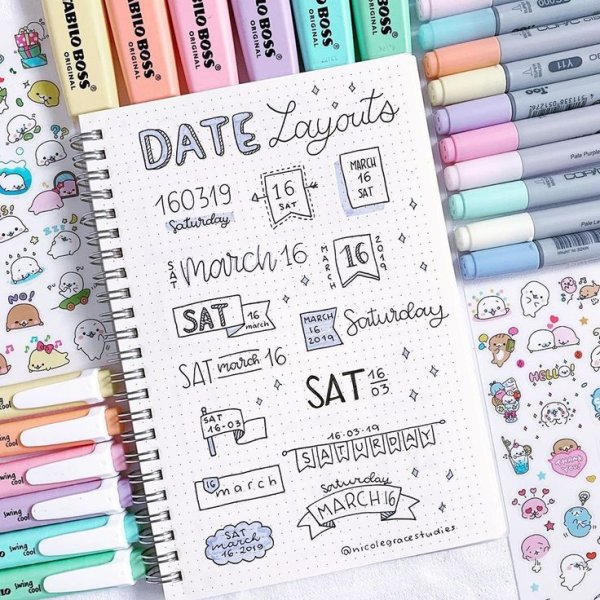 STABILO BOSS
ORIGINAL
STABILO BOSS
ORIGINAL
STABILO BOSS
ORIGINAL
STABILO BOSS
ORIGINAL
STABILO BOSS
ORIGINAL
STABILO BOSS
ORIGINAL
DATE Layouts
160319
Saturday
16
SAT
MARCH
16
SAT
SAT march 16
MARCH 16 2019
SAT
16
march
MARCH
16
2019
Saturday
SAT march 16
SAT 16
03
SAT
16-03
16-03-19
SATURDAY
16 march
saturday
MARCH 16
SAT
march
16-2019
@nicolegracestudies
Y11
Pale Purple
NO!
ZZZ
HELLO!
THANK YOU
swing cool
swing cool
swing cool
swing cool
swing cool
swing cool